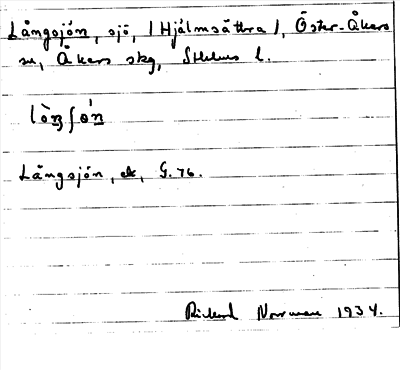 Långsjön, sjö, / Hjälmsättra /, Öster-Åkers
sn, Åkers skg, Sthlms l.
lòŋʃǿn
Långsjön, ek, G. 76.
Rickard Norrman 1934.